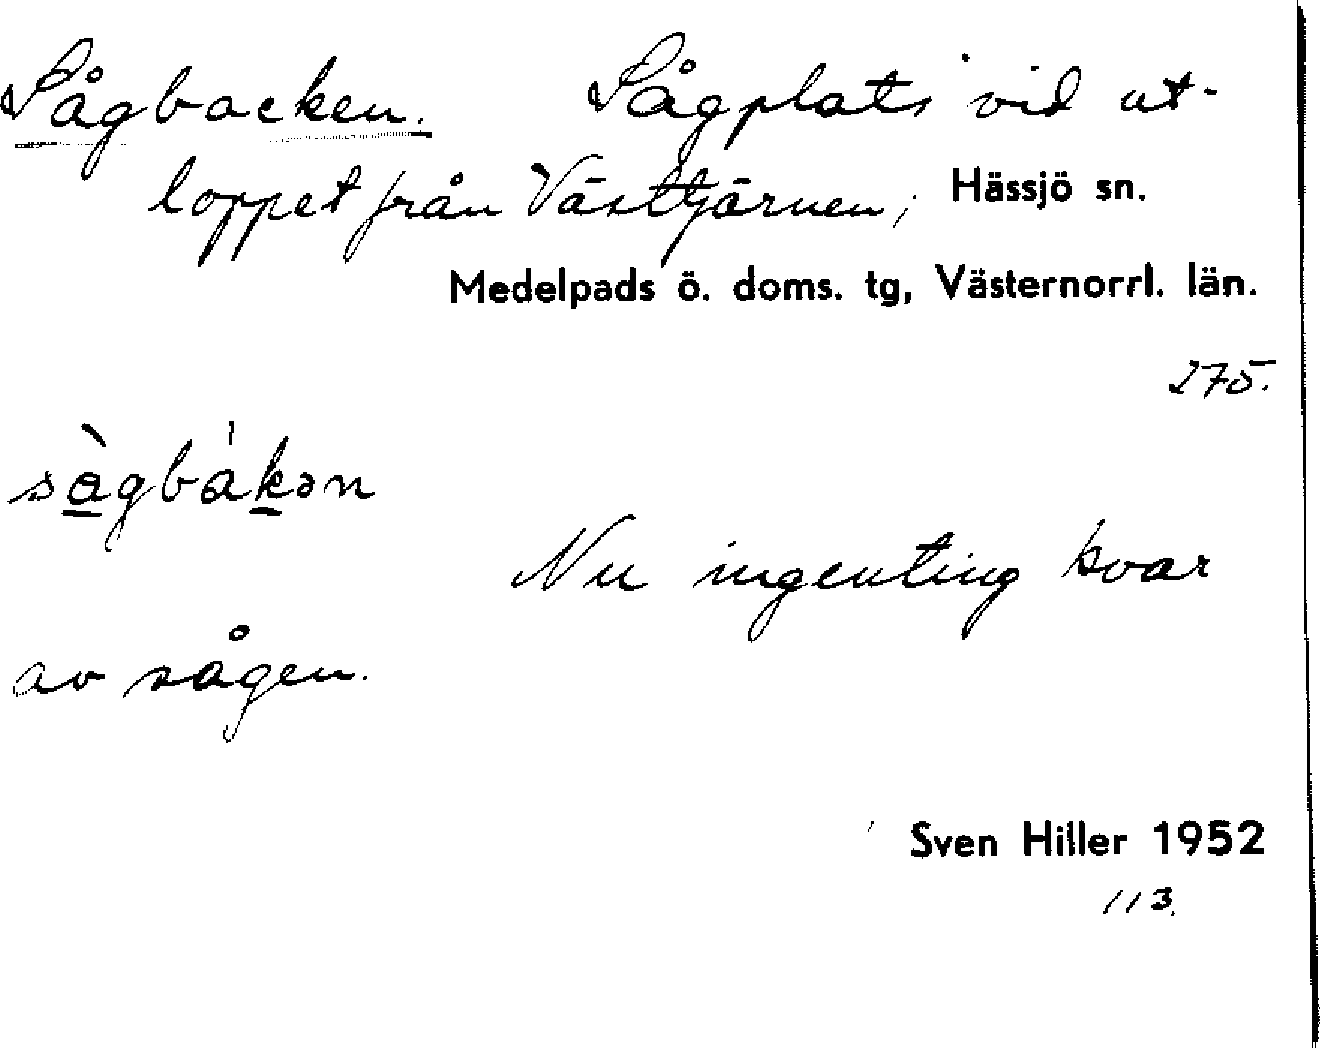 Sågbacken. Sågplats vid ut-
loppet från Västtjärnen, Hässjö sn.
Medelpads ö. doms. tg, Västernorrl. län.
275.
sàgbákən
Nu ingenting kvar
av sågen.
Sven Hiller 1952
113.